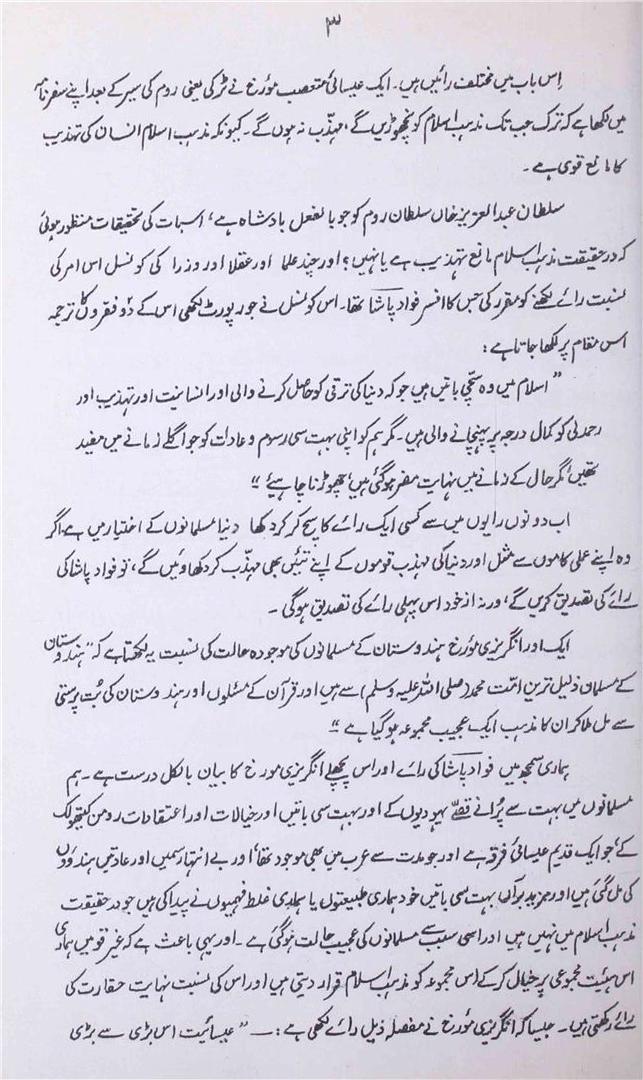 ۳
اِس باب میں مختلف رائیں ہیں۔ ایک عیسائی متعصب مؤرخ نے ٹرکی یعنی روم کی سیر کے بعد اپنے سفرنامہ
میں لکھا ہے کہ ترک جب تک مذہب اسلام کو نہ چھوڑیں گے، مہذّب نہ ہوں گے۔ کیونکہ مذہب اسلام انسان کی تہذیب
کا مانع قوی ہے۔
سلطان عبدالعزیز خاں سلطان روم کو جو بالفعل بادشاہ ہے، اسبات کی تحقیقات منظور ہوئی
کہ درحقیقت مذہب اسلام مانع تہذیب ہے یا نہیں؟ اور چند علما اور عقلا اور وزرا کی کونسل اس امر کی
نسبت رائے لکھنے کو مقرر کی جس کا افسر فواد پاشا تھا۔ اس کونسل نے جو رپورٹ لکھی اس کے دو فقروں کا ترجمہ
اس مقام پر لکھا جاتا ہے:
”اسلام میں وہ سچی باتیں ہیں جو کہ دنیا کی ترقی کو حاصل کرنے والی اور انسانیت اور تہذیب اور
رحمدلی کو کمال درجہ پر پہنچانے والی ہیں۔ مگر ہم کو اپنی بہت سی رسوم و عادات کو جو اگلے زمانے میں مفید
تھیں مگر حال کے زمانے میں نہایت مضر ہوگئی ہیں، چھوڑنا چاہیئے“
اب دونوں رایوں میں سے کسی ایک رائے کا سچ کر کر دکھا دنیا مسلمانوں کے اختیار میں ہے۔ اگر
وہ اپنے عملی کاموں سے مثل اور دنیا کی مہذب قوموں کے اپنے تئیں بھی مہذّب کر دکھاویں گے، تو فواد پاشا کی
رائے کی تصدیق کریں گے، ورنہ از خود اس پہلی رائے کی تصدیق ہوگی۔
ایک اور انگریزی مؤرخ ہندوستان کے مسلمانوں کی موجودہ حالت کی نسبت یہ لکھتا ہے کہ ”ہندوستان
کے مسلمان ذلیل ترین اُمّت محمد (صلی اللہ علیہ وسلم) سے ہیں اور قرآن کے مسئلوں اور ہندوستان کی بُت پرستی
سے مل ملا کر ان کا مذہب ایک عجیب مجموعہ ہوگیا ہے“
ہماری سمجھ میں فواد پاشا کی رائے اور اس پچھلے انگریزی مورخ کا بیان بالکل درست ہے۔ ہم
مسلمانوں میں بہت سے پُرانے قصّے یہودیوں کے اور بہت سی باتیں اور خیالات اور اعتقادات رومن کیتھولک
کے، جو ایک قدیم عیسائی فرقہ ہے اور جو مدت سے عرب میں بھی موجود تھا، اور بے انتہا رسمیں اور عادتیں ہندوؤں
کی مل گئی ہیں اور مزید برآں بہت سی باتیں خود ہماری طبیعتوں یا ہماری غلط فہمیوں نے پیدا کی ہیں جو درحقیقت
مذہب اسلام میں نہیں ہیں اور اسی سبب سے مسلمانوں کی عجیب حالت ہوگئی ہے۔ اور یہی باعث ہے کہ غیر قومیں ہماری
اس ہیئت مجموعی پر خیال کر کے اس مجموعہ کو مذہب اسلام قرار دیتی ہیں اور اس کی نسبت نہایت حقارت کی
رائے رکھتی ہیں۔ جیسا کہ انگریزی مؤرخ نے مفصلہ ذیل رائے لکھی ہے:— ”عیسائیت اس بڑی سے بڑی